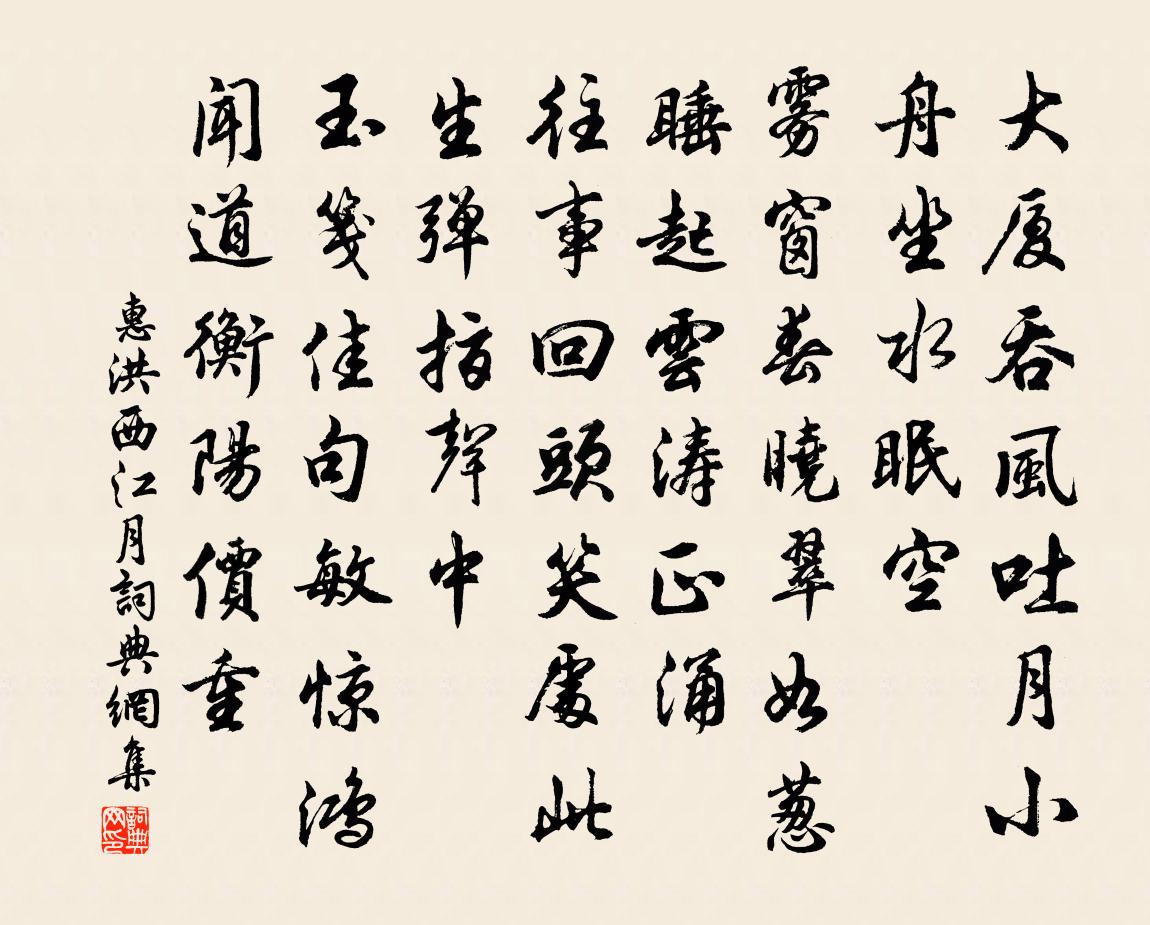 大厦吞風吐月小
舟坐水眠空
雾窗春曉翠如葱
睡起雲涛正涌
往事回頭笑處此
生彈指聲中
玉箋佳句敏惊鴻
聞道衡陽價重
惠洪西江月詞典網集
詞典網印